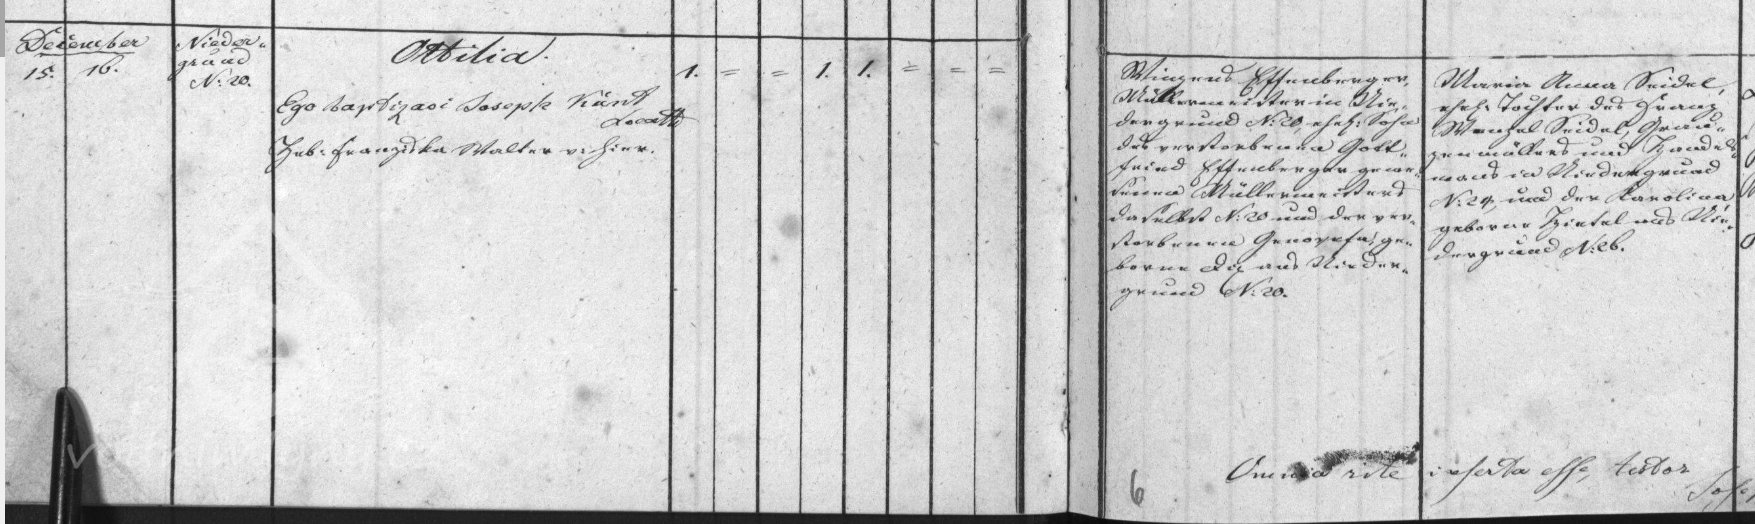 December
15. 16.
Nieder-
grund
N: 20.
Ottilia.
1. = = 1. 1. = = =
Ego baptizavi Joseph
Heb: Franziska Walter v: hier.
Vinzens Effenberger,
Müllermeister in Nie-
dergrund N: 20, ehel: Sohn
des verstorbenen Gott-
fried Effenberger gewe-
senen Müllermeisters
daselbst N: 20 und der ver-
storbenen Genovefa, ge-
borne aus Nieder-
grund N: 20.
Maria Anna Seidel,
ehel: Tochter des Franz
Wenzel Seidel,
und Handels-
manns in Niedergrund
und der Karolina
geborne Hietel aus Nie-
dergrund N: 26.
6
Omnia rite inserta esse, testor